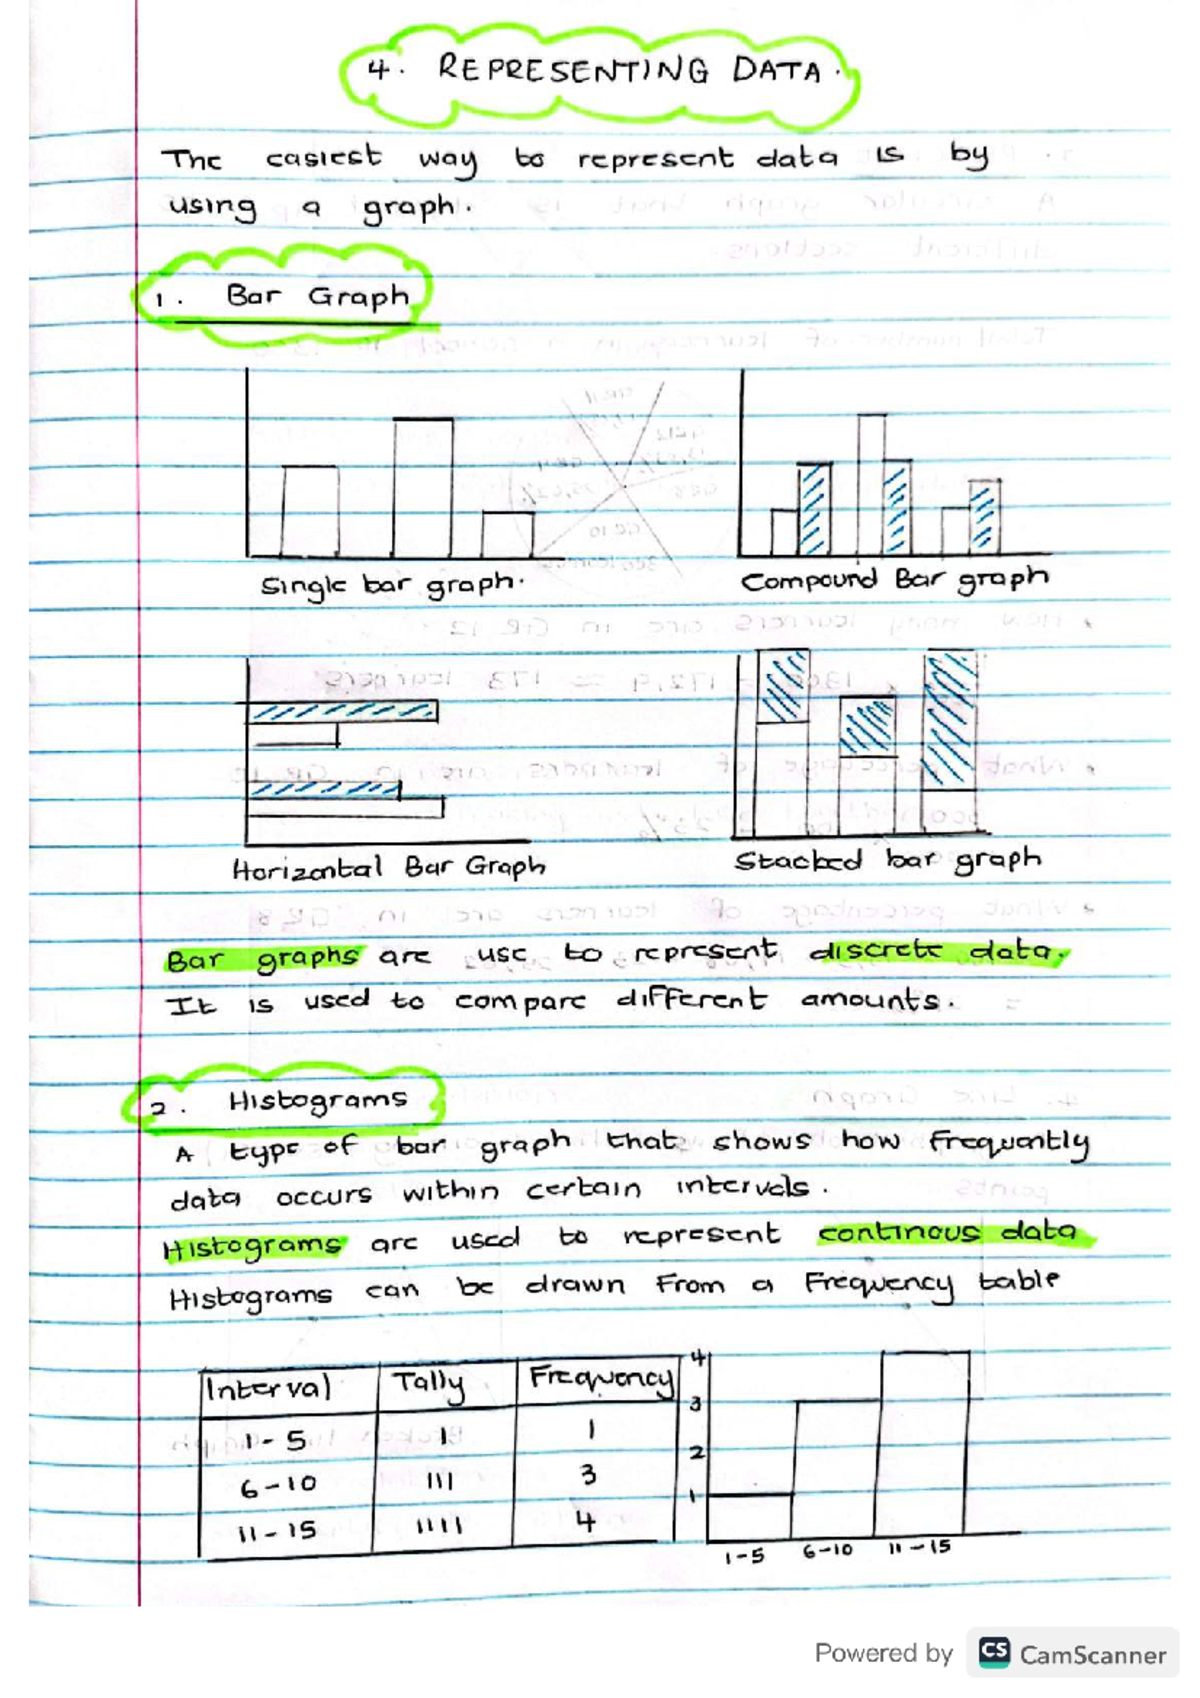 4. REPRESENTING DATA.
The easiest way to represent data is by
using a graph.
1. Bar Graph
Single bar graph.
Compound Bar graph
Horizontal Bar Graph
Stacked bar graph
Bar graphs are use to represent discrete data.
It is used to compare different amounts.
2. Histograms
A type of bar graph that shows how frequently
data occurs within certain intervals.
Histograms are used to represent continous data
Histograms can be drawn from a Frequency table
Interval Tally Frequency
1-5 I 1
6-10 III 3
11-15 IIII 4
4
3
2
1
1-5 6-10 11-15
Powered by CS CamScanner